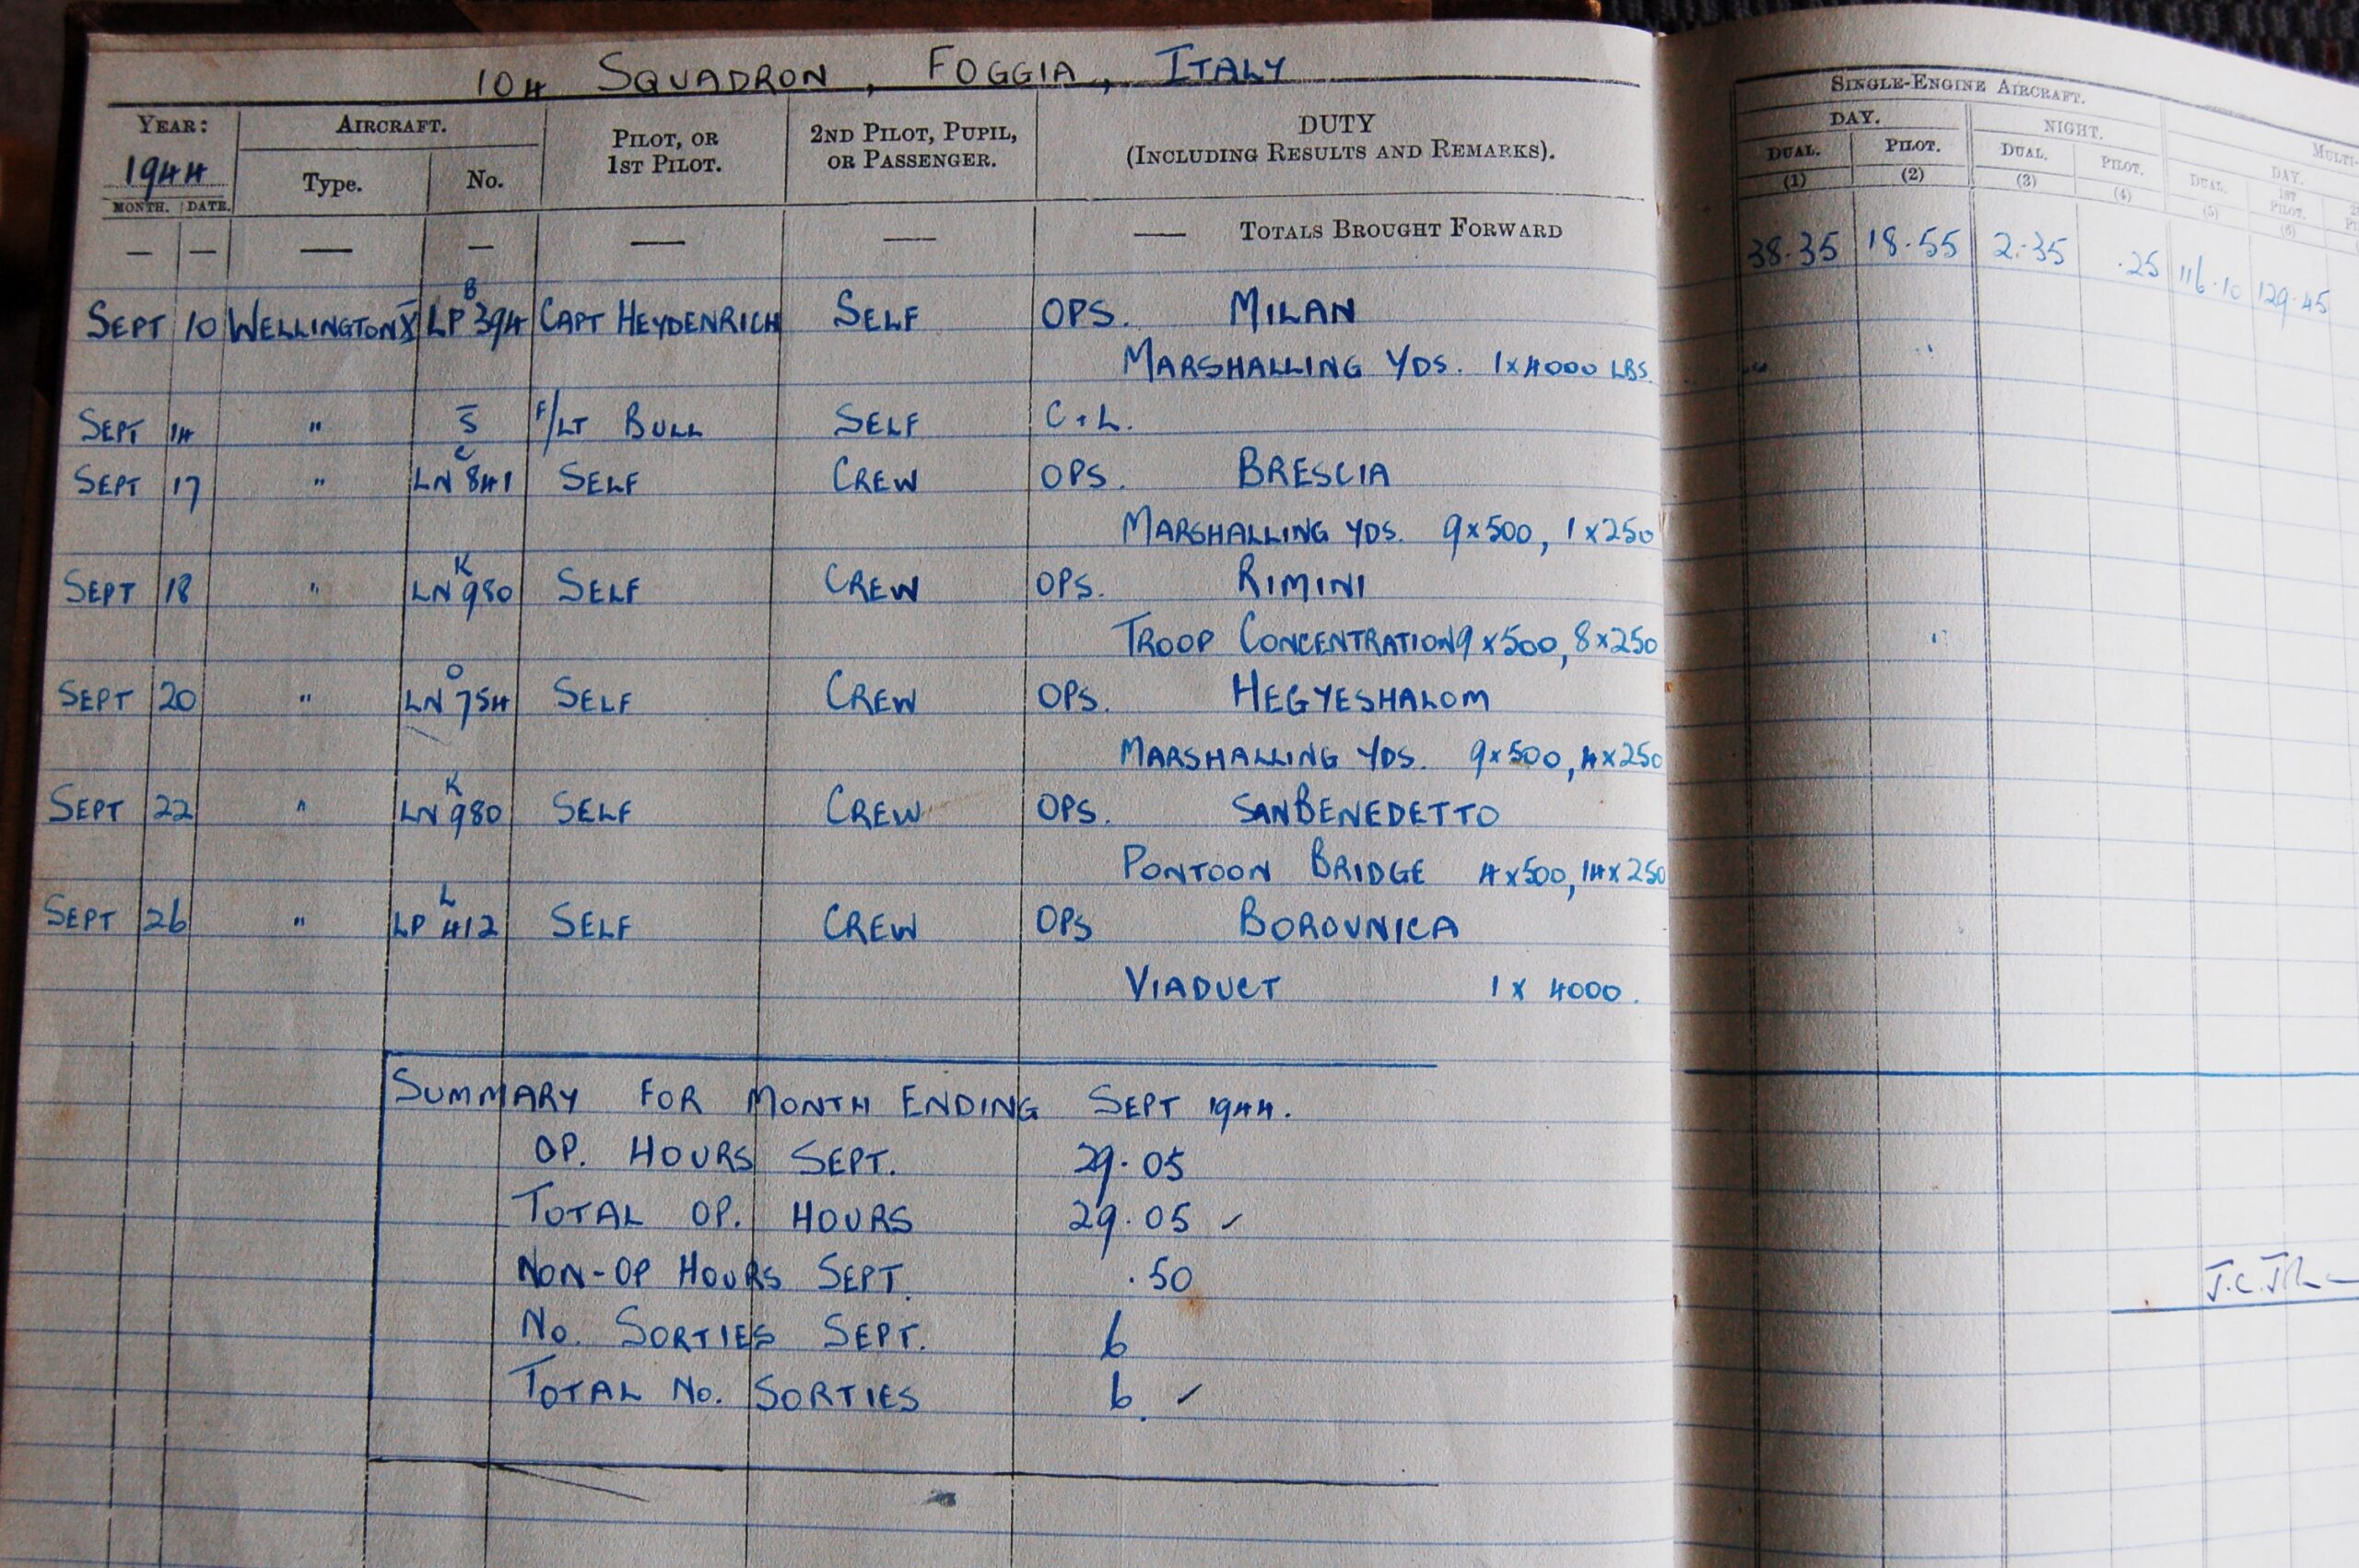 104 SQUADRON, FOGGIA, ITALY
YEAR: AIRCRAFT. PILOT, OR 1ST PILOT. 2ND PILOT, PUPIL, OR PASSENGER. DUTY (INCLUDING RESULTS AND REMARKS).
1944 Type. No.
MONTH. DATE.
— — — — — — — TOTALS BROUGHT FORWARD
B
SEPT 10 WELLINGTON X LP 394 CAPT HEYDENRICH SELF OPS. MILAN
MARSHALLING YDS. 1x4000 LBS.
SEPT 14 " S F/LT BULL SELF C+L.
C
SEPT 17 " LN 841 SELF CREW OPS. BRESCIA
MARSHALLING YDS. 9x500, 1x250
K
SEPT 18 " LN 980 SELF CREW OPS. RIMINI
TROOP CONCENTRATION 9x500, 8x250
O
SEPT 20 " LN 754 SELF CREW OPS. HEGYESHALOM
MARSHALLING YDS. 9x500, 4x250
K
SEPT 22 " LN 980 SELF CREW OPS. SANBENEDETTO
PONTOON BRIDGE 4x500, 14x250
L
SEPT 26 " LP 412 SELF CREW OPS BOROVNICA
VIADUCT 1 x 4000.
SUMMARY FOR MONTH ENDING SEPT 1944.
OP. HOURS SEPT. 29.05
TOTAL OP. HOURS 29.05 ✓
NON-OP HOURS SEPT. .50
No. SORTIES SEPT. 6
TOTAL No. SORTIES 6. ✓
SINGLE-ENGINE AIRCRAFT.
DAY. NIGHT. MULTI-
DUAL. PILOT. DUAL. PILOT. DAY.
DUAL. 1ST PILOT.
(1) (2) (3) (4) (5) (6)
38.35 18.55 2.35 .25 116.10 129.45
J.C.